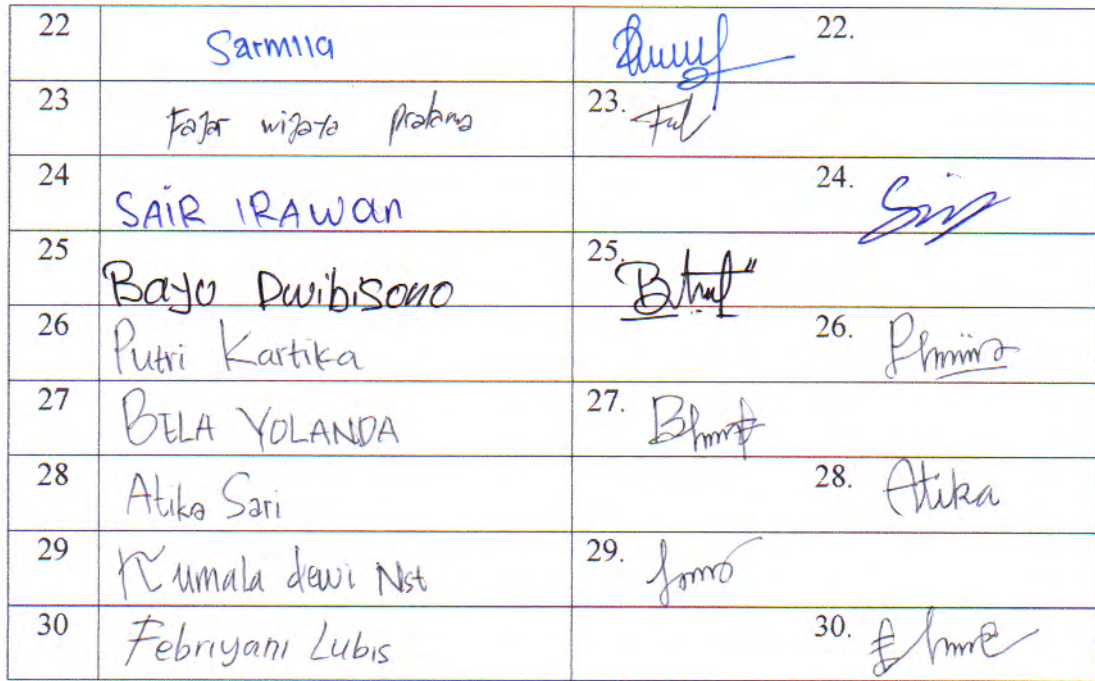 22 Sarmila 22.
23 Fajar wijaya pratama 23.
24 SAIR IRAWAN 24.
25 Bayu Dwibisono 25.
26 Putri Kartika 26.
27 BELA YOLANDA 27.
28 Atika Sari 28. Atika
29 Kumala dewi Nst 29.
30 Febriyani Lubis 30.